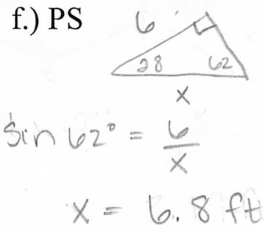 f.) PS
6
28 62
x
Sin 62° = 6/x
x = 6.8 ft